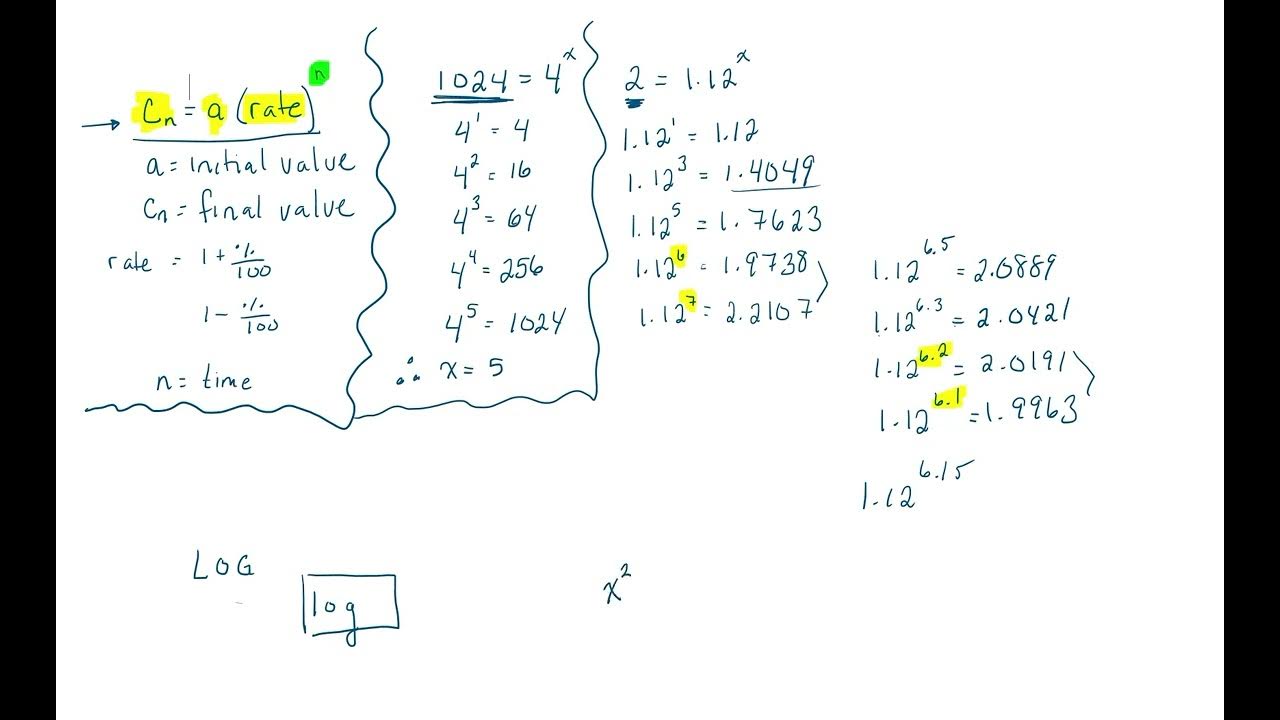 Cₙ = a (rate)ⁿ
a = initial value
Cₙ = final value
rate = 1 + %/100
1 - %/100
n = time
1024 = 4ˣ
4¹ = 4
4² = 16
4³ = 64
4⁴ = 256
4⁵ = 1024
∴ x = 5
2 = 1.12ˣ
1.12¹ = 1.12
1.12³ = 1.4049
1.12⁵ = 1.7623
1.12⁶ = 1.9738
1.12⁷ = 2.2107
1.12^6.5 = 2.0889
1.12^6.3 = 2.0421
1.12^6.2 = 2.0191
1.12^6.1 = 1.9963
1.12^6.15
LOG
log
x²